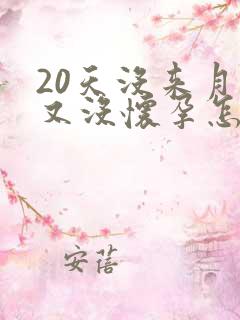 20天没来月
又没怀孕怎
安蓓